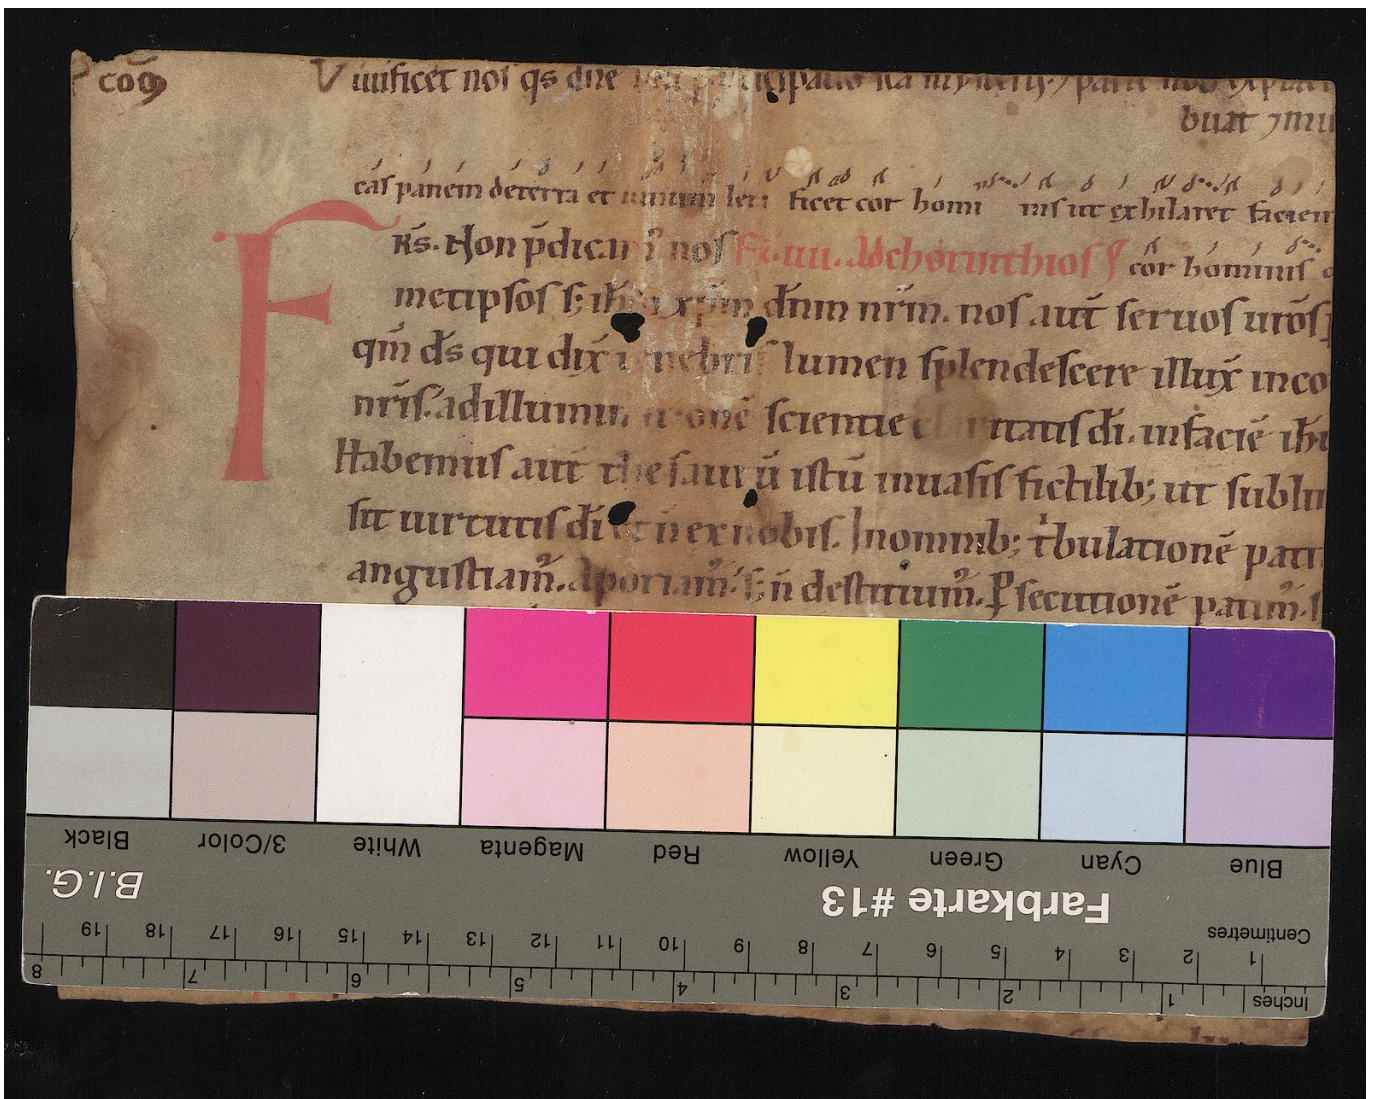 coꝫ Viuificet nos qs dne participatio
buat ⁊mu
cas panem deterra et uinum leti ficet cor homi nis ut exhilaret faciem
F Rs. Non p̄dicam nos Ad chorinthios cor hominis
metipsos s; ih̄m xp̄m dn̄m nr̄m. nos aut̄ seruos ur̄os
qm̄ ds̄ qui dix̄ tenebris lumen splendescere illux̄ inco
nr̄is. adillumin ationē scientie claritatis dī. infaciē ih̄u
Habemus aut̄ thesaurū istū inuasis fictilib; ut subli
sit uirtutis dī et n̄ ex nobis. Inomnib; tⁱbulationē pati
angustiam᷒. Aporiam᷒. s; n̄ destituim᷒. ꝑsecutionē patim᷒.
Black 3/Color White Magenta Red Yellow Green Cyan Blue
B.I.G. Farbkarte #13
Centimetres
19 18 17 16 15 14 13 12 11 10 9 8 7 6 5 4 3 2 1
8 7 6 5 4 3 2 1 Inches